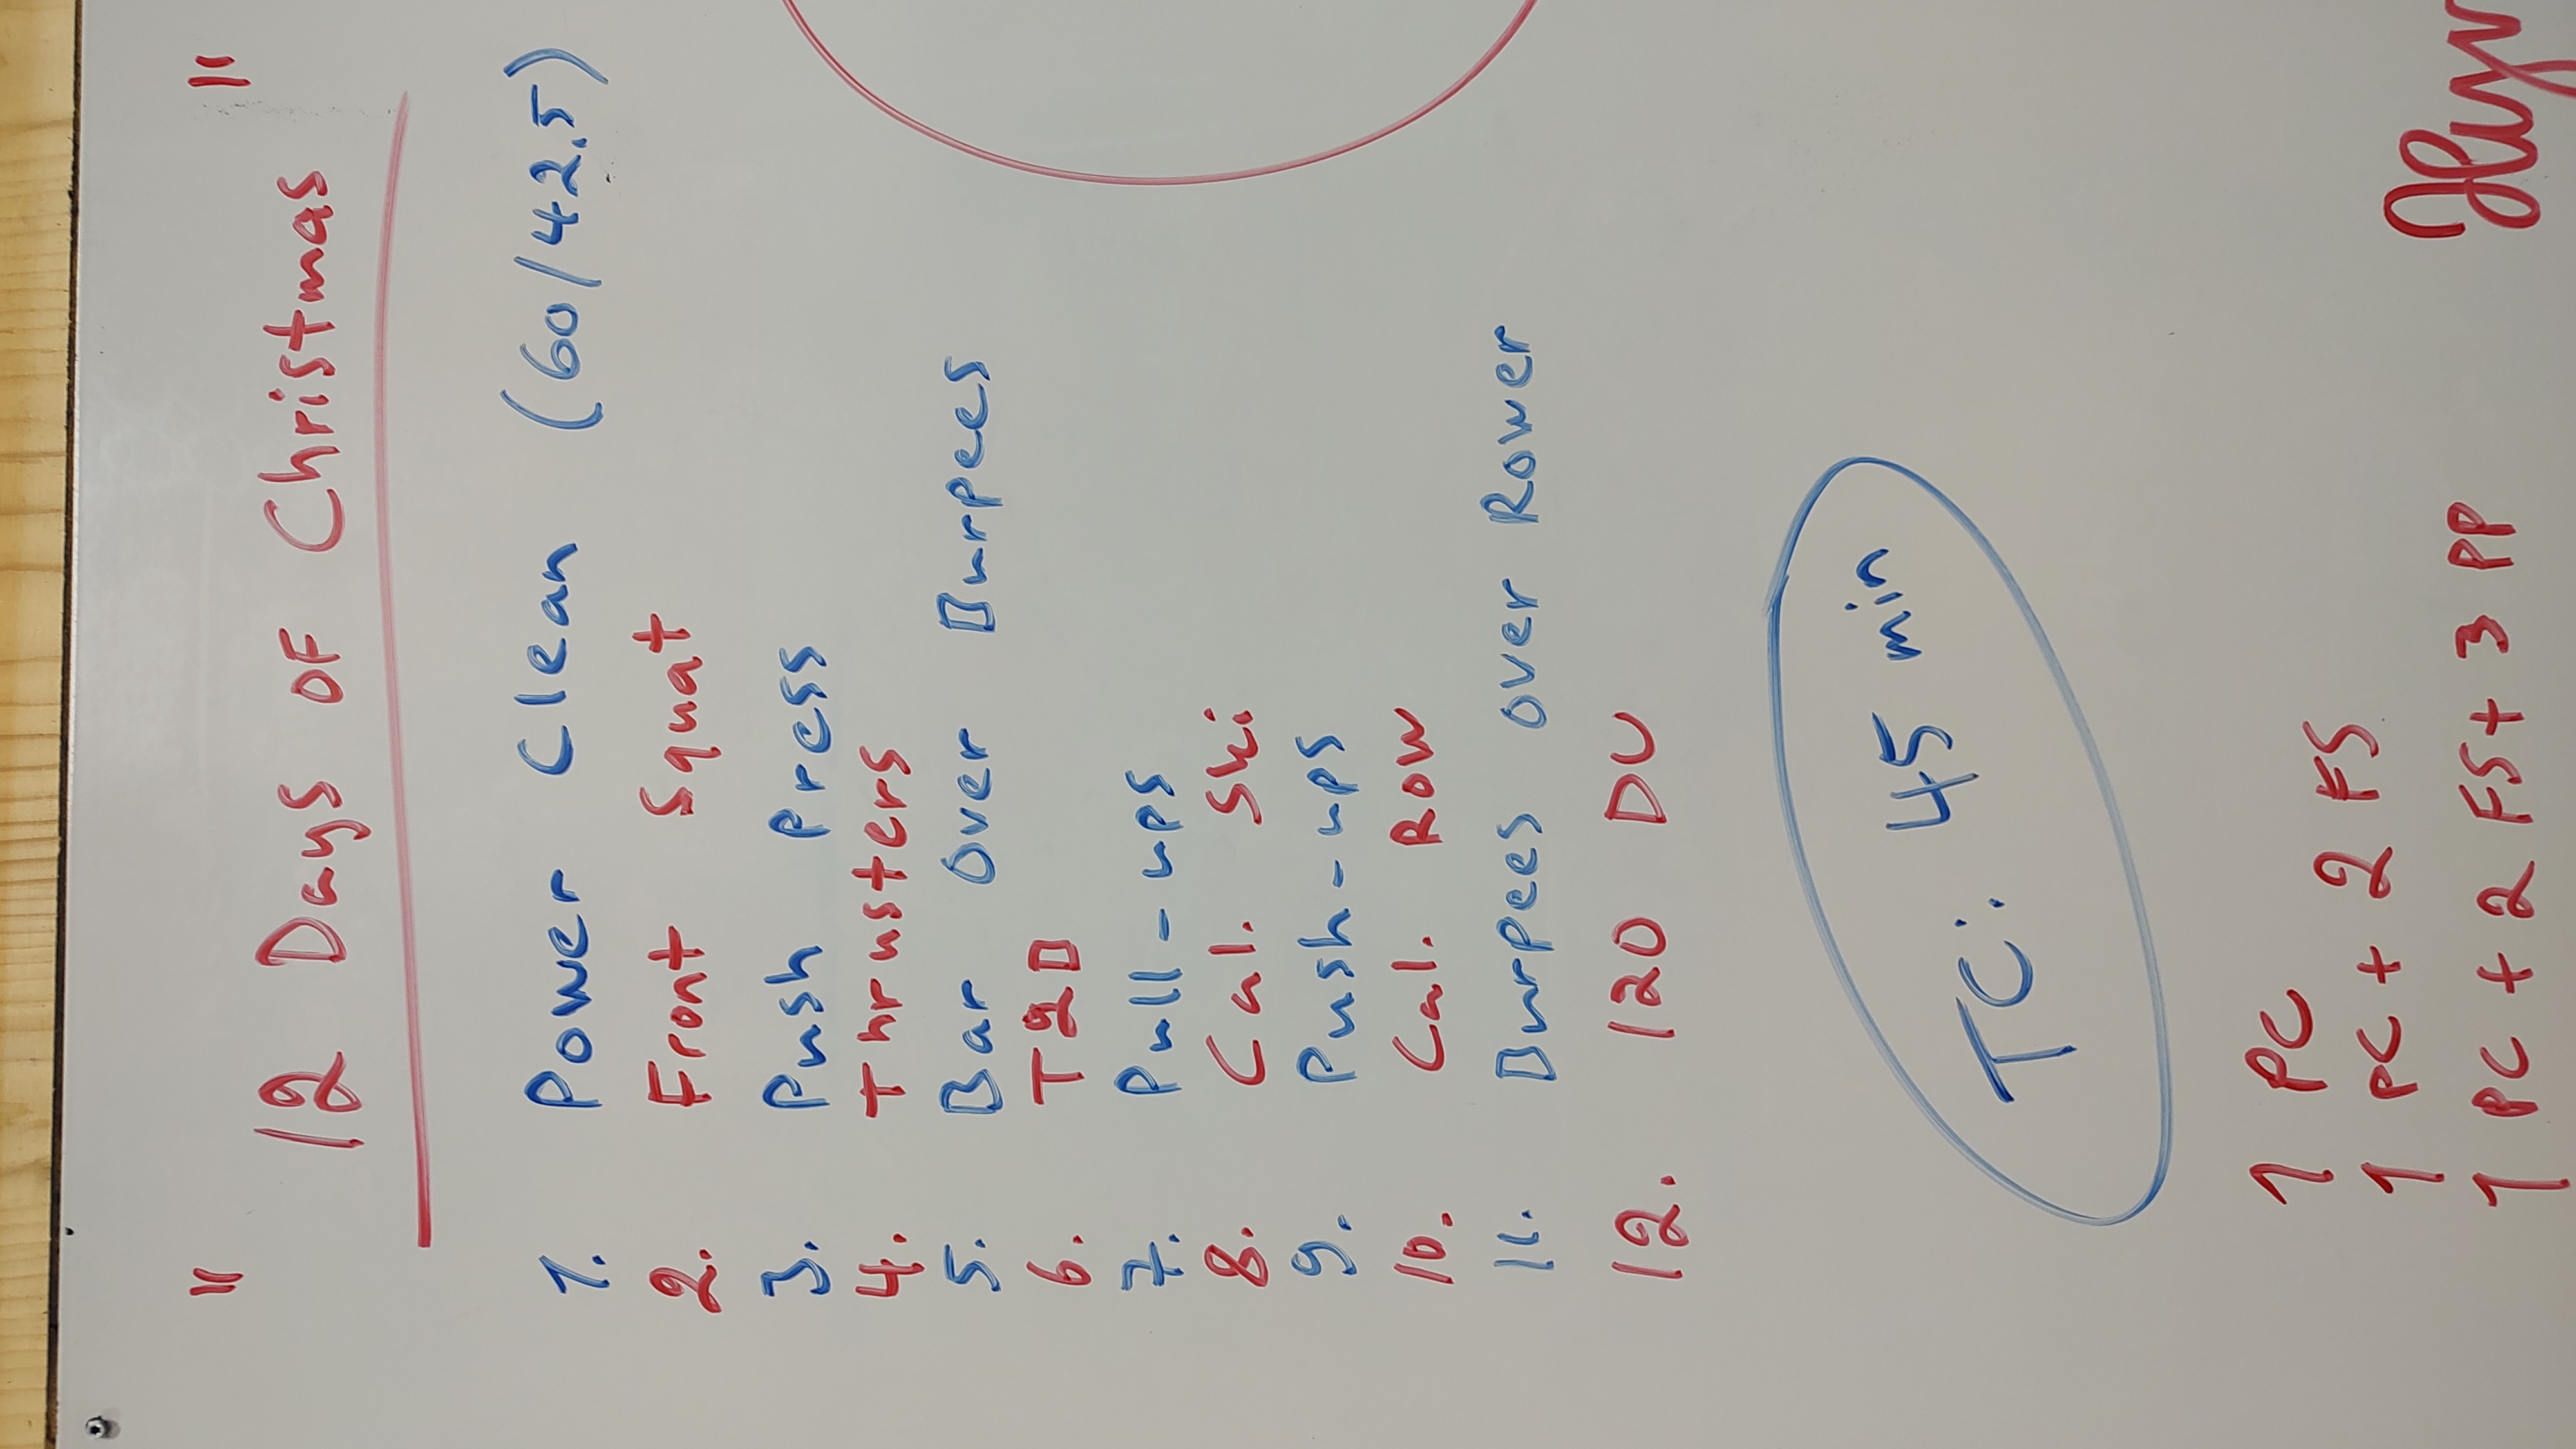 " 12 Days OF Christmas "
1. Power Clean (60/42.5)
2. Front Squat
3. Push Press
4. Thrusters
5. Bar Over Burpees
6. T2B
7. Pull-ups
8. Cal. Ski
9. Push-ups
10. Cal. Row
11. Burpees over Rower
12. 120 DU
TC: 45 min
1 PC
1 PC + 2 FS
1 PC + 2 FS + 3 PP